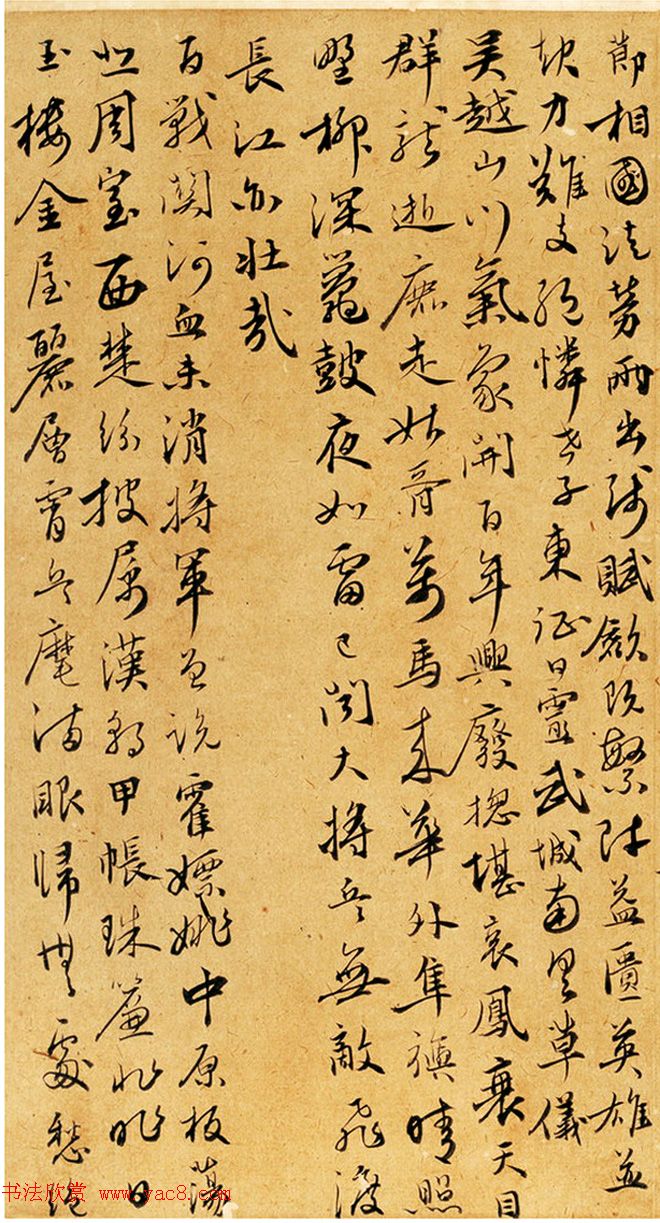 節相國徒勞兩出師賦斂既繁財益匱英雄並
起力難支絕憐子東征日靈武城南具草儀
吳越山川氣象開百年興廢總堪哀鳳衰天目
群龍逝鹿走姑胥萬馬來華外隼旟晴照
野柳深鼉鼓夜如雷已聞大將兵無敵飛渡
長江亦壯哉
百戰關河血未消將軍曾說霍嫖姚中原板蕩
悲周室西楚紛披屬漢朝甲帳珠簾非昨日
玉樓金屋麗層霄兵塵滿眼歸無處愁絕
书法欣赏 www.yac8.com